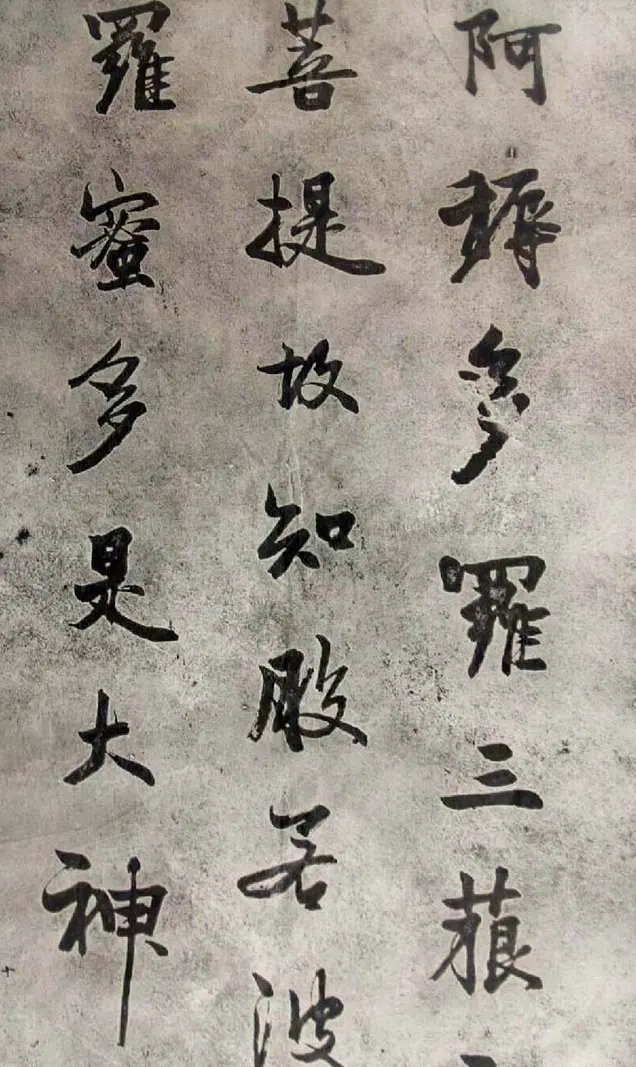 阿耨多羅三藐
菩提故知般若波
羅蜜多是大神